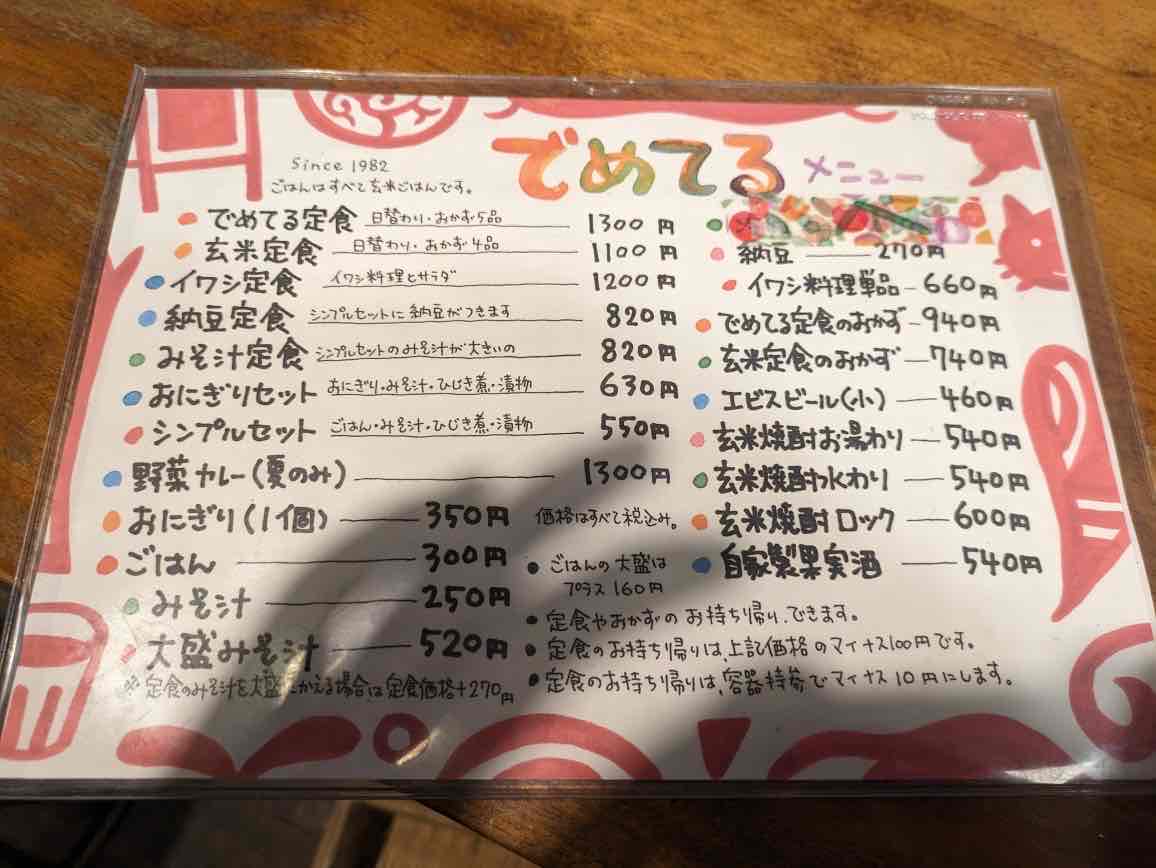 Since 1982
ごはんはすべて玄米ごはんです。
でめてる メニュー
でめてる定食 日替わり・おかず5品 1300円
玄米定食 日替わり・おかず4品 1100円
イワシ定食 イワシ料理とサラダ 1200円
納豆定食 シンプルセットに納豆がつきます 820円
みそ汁定食 シンプルセットのみそ汁が大きいの 820円
おにぎりセット おにぎり・みそ汁・ひじき煮・漬物 630円
シンプルセット ごはん・みそ汁・ひじき煮・漬物 550円
野菜カレー(夏のみ) 1300円
おにぎり(1個) 350円
ごはん 300円
みそ汁 250円
大盛みそ汁 520円
※定食のみそ汁を大盛にかえる場合は定食価格+270円
納豆 270円
イワシ料理単品 660円
でめてる定食のおかず 940円
玄米定食のおかず 740円
エビスビール(小) 460円
玄米焼酎お湯わり 540円
玄米焼酎水わり 540円
玄米焼酎ロック 600円
自家製果実酒 540円
価格はすべて税込み。
・ごはんの大盛は
プラス160円
・定食やおかずのお持ち帰り、できます。
・定食のお持ち帰りは、上記価格のマイナス100円です。
・定食のお持ち帰りは、容器持参でマイナス10円にします。